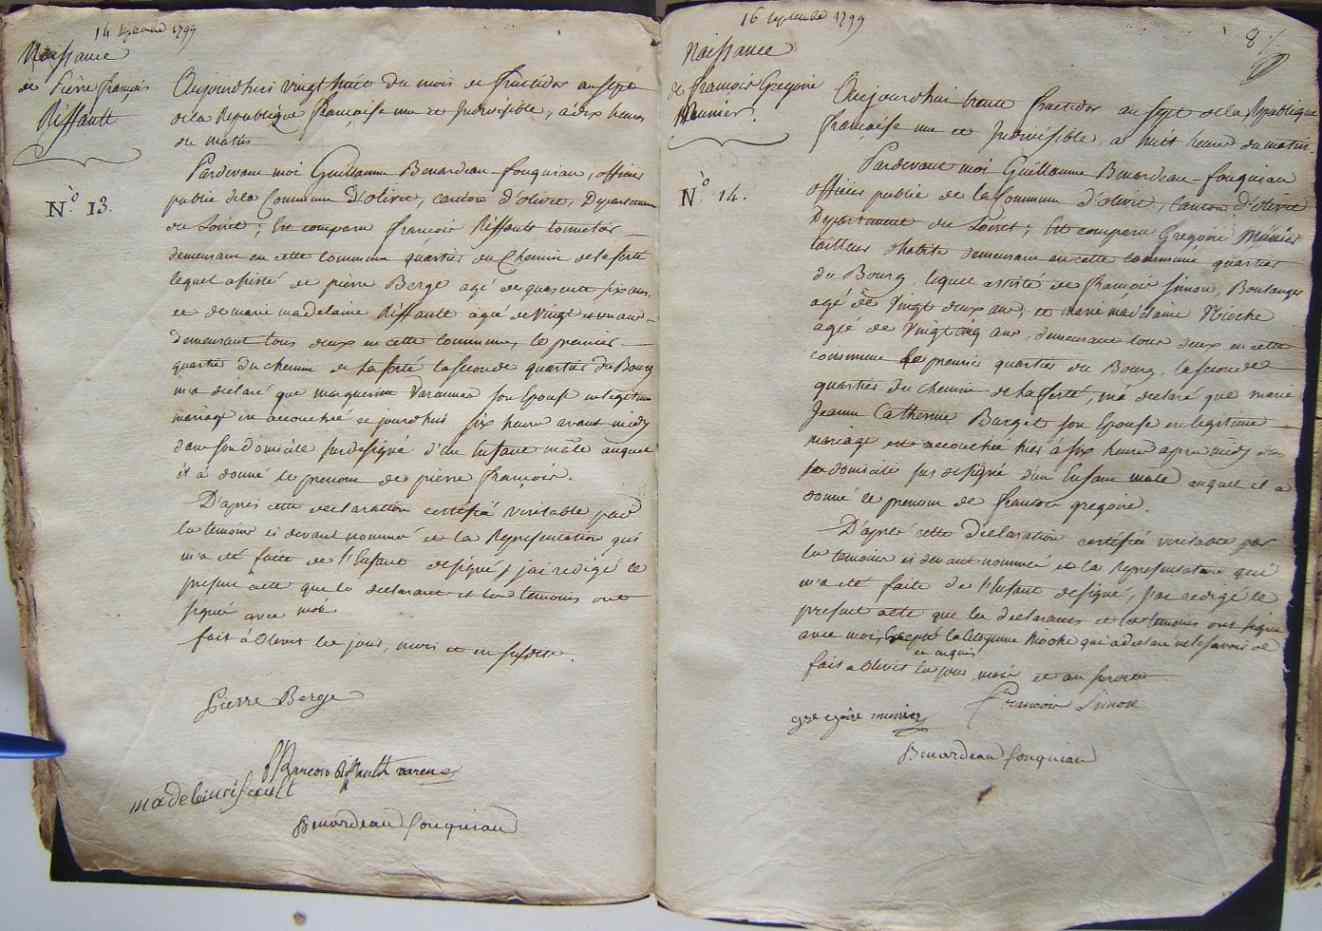 14 septembre 1799
Naissance
de Pierre françois
Riffault
N.º 13.
Aujourdhui vingt huit du mois de fructidor an sept
de la Republique française une et Indivisible, à dix heures
du matin
Pardevant moi Guillaume Benardeau-fouquiau, officier
public de la Commune d'olivet, canton d'olivet, Departement
du Loiret; Est comparu françois Riffault tonnelier
demeurant en cette Commune quartier du Chemin de la ferté
lequel assisté de pierre Berge agé de quarente six ans,
et de marie madelaine Riffault agée de vingt et un ans
demeurant tous deux en cette Commune, le premier
quartier du chemin de la ferté la seconde quartier du Bourg
m'a déclaré que marguerite Varannes son Epouse en legitime
mariage est accouchée ce jourd'hui six heures avant midy
dans son domicile susdesigné d'un Enfant mâle auquel
il a donné le prenom de pierre françois.
D'après cette declaration certifié veritable par
les temoins ci devant nommés et la Representation qui
m'a été faite de l'Enfant designé, j'ai redigé le
present acte que le declarant et les temoins ont
signé avec moi.
fait à Olivet les jour, mois et an susdits.
Pierre Berge
fRancois Riffault
madelein
Benardeau fouquiau
16 septembre 1799
8
Naissance
de françois Gregoire
Meunier.
N.º 14.
Aujourdhui trente fructidor an sept de la Republique
française une et Indivisible, a huit heures du matin.
Pardevant moi Guillaume Benardeau-fouquiau
officier public de la Commune d'olivet, canton d'olivet
Departement du Loiret; Est comparu Gregoire Munier
tailleur d'habits demeurant en cette commune quartier
du Bourg, lequel assisté de françois Simon, Boulanger
agé de vingt deux ans, et marie madelaine Nioche
agée de vingt cinq ans, demeurant tous deux en cette
commune le premier quartier du Bourg, la seconde
quartier du chemin de la ferté, m'a declaré que marie
Jeanne Catherine Barget son Epouse en legitime
mariage est accouchée hier à six heures après midy en
domicile sus designé d'un Enfant male auquel il a
donné le prenom de francois gregoire.
D'après cette Declaration certifiée veritable par
les temoins ci devant nommés et la Representation qui
m'a été faite de l'Enfant designé, j'ai redigé le
present acte que les declarants et les temoins ont signé
avec moi, Excepté la Citoyenne Nioche qui a declaré ne le savoir de
ce requis
fait a Olivet les jour, mois et an susdits
Francois Simon
gregoire munier
Benardeau fouquiau